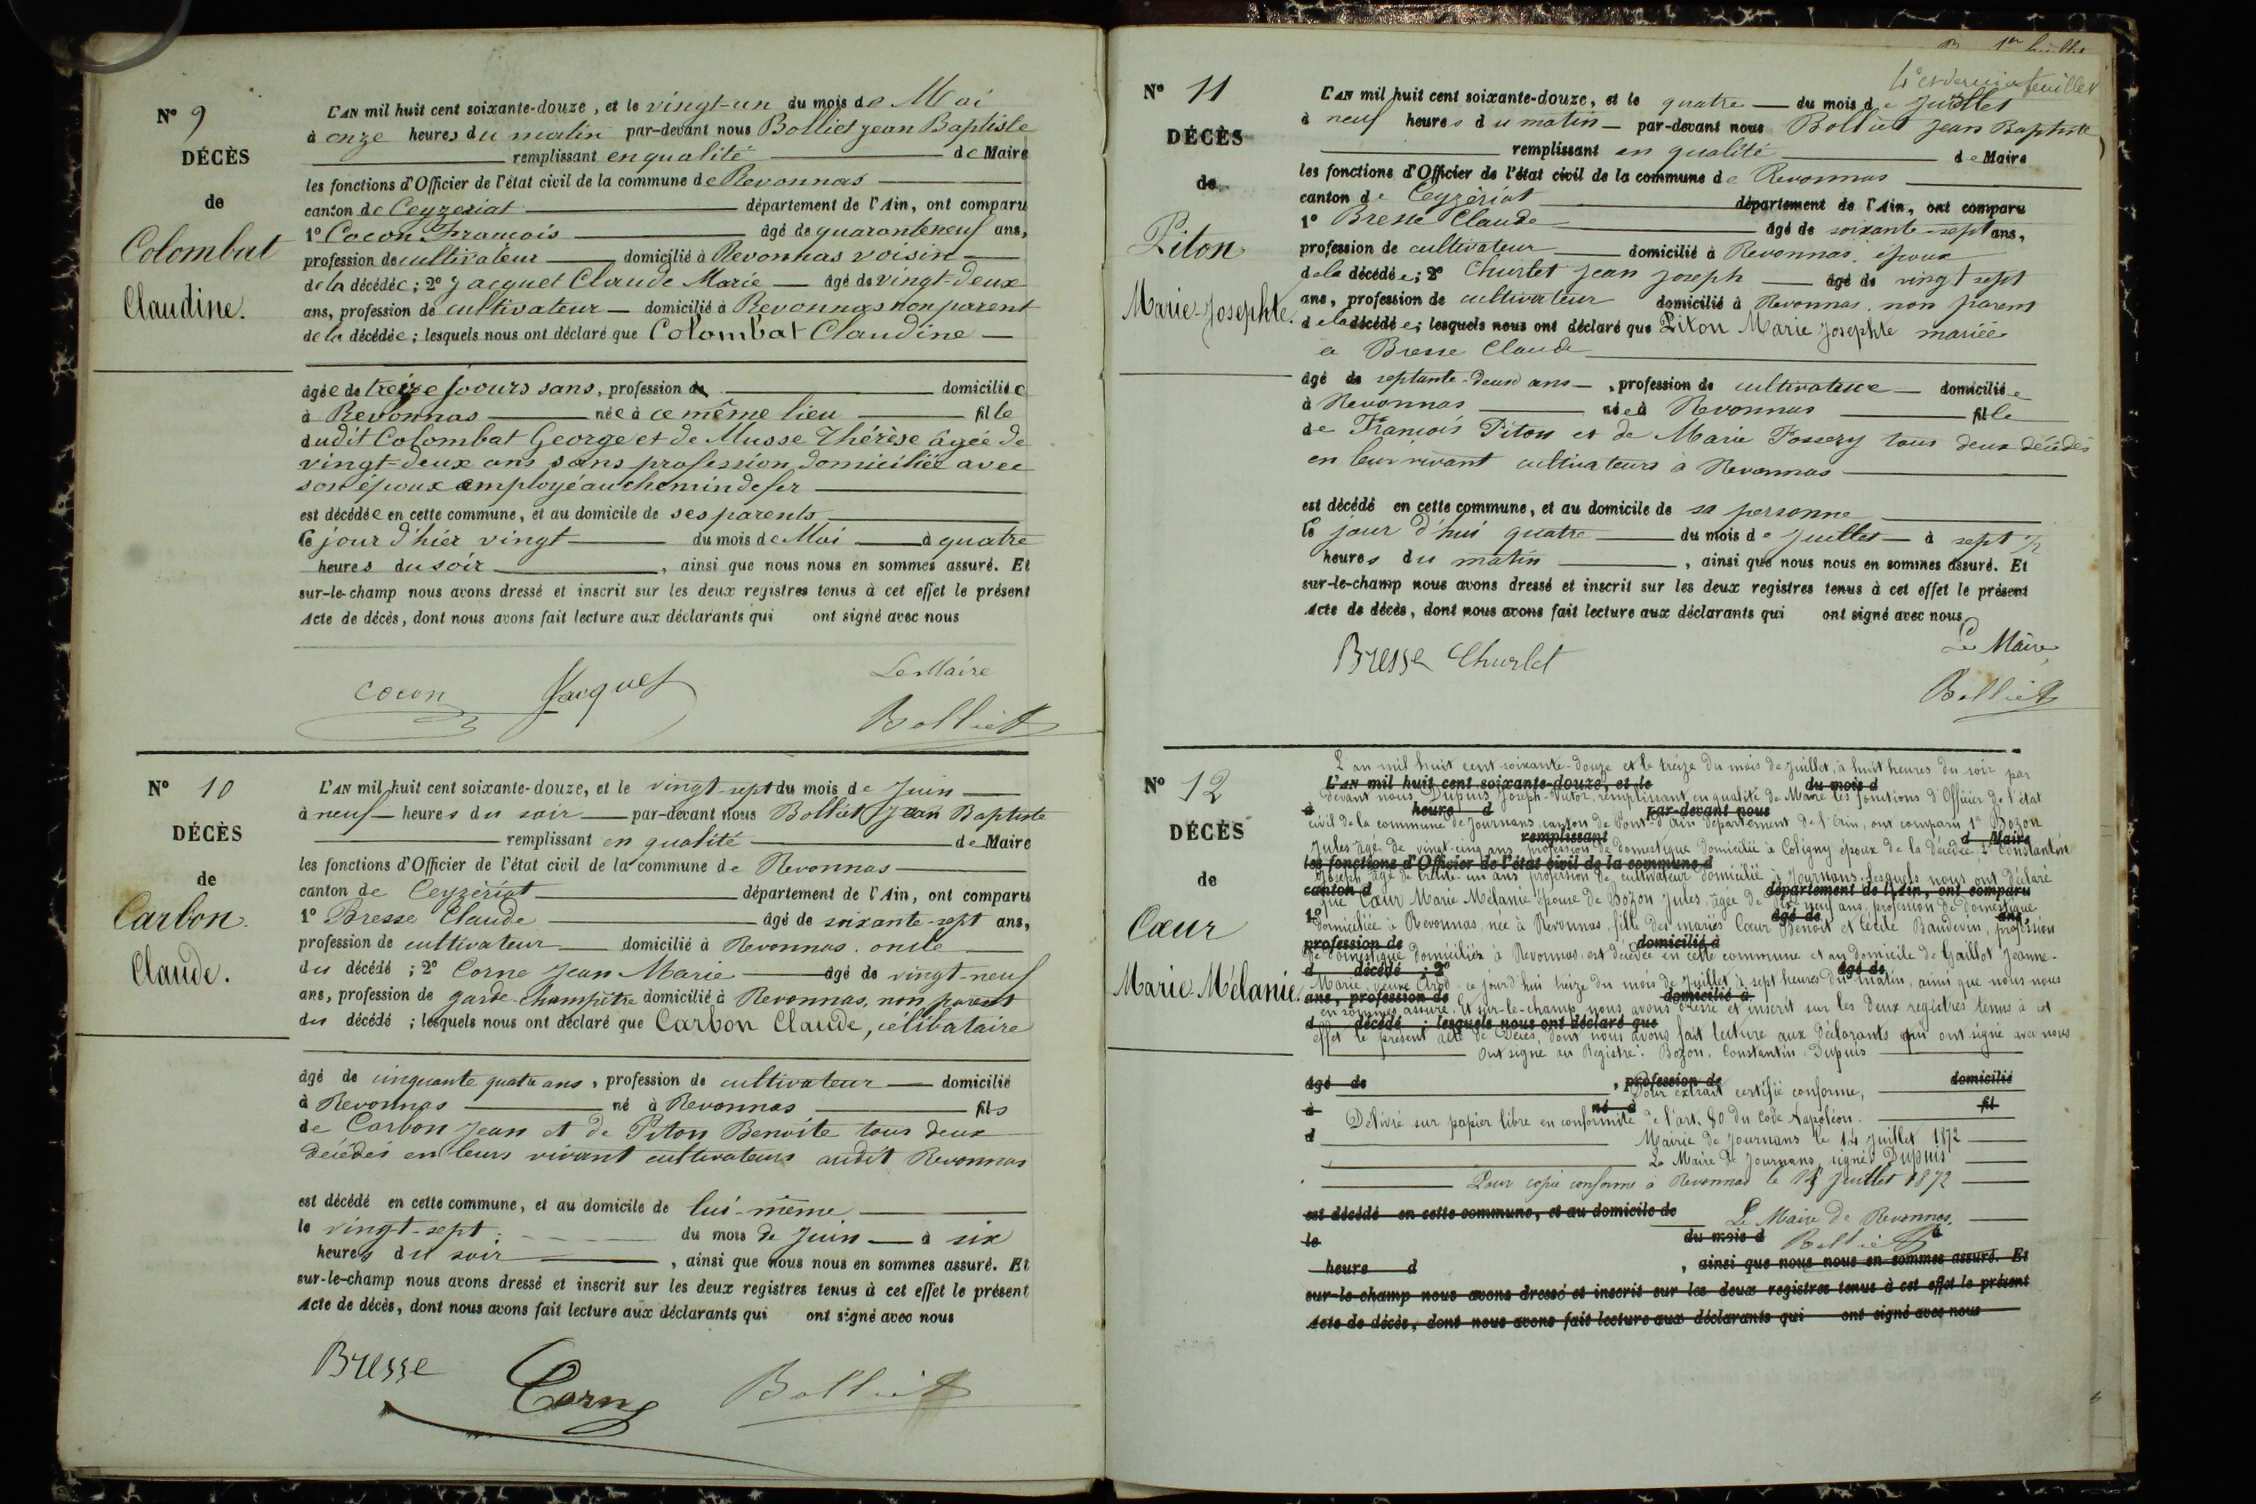 N° 9
DÉCÈS
de
Colombat
Claudine.
L'AN mil huit cent soixante-douze, et le vingt-un du mois de Mai
à onze heures du matin par-devant nous Bolliet Jean Baptiste
remplissant en qualité de Maire
les fonctions d'Officier de l'état civil de la commune de Revonnas
canton de Ceyzeriat département de l'Ain, ont comparu
1° Cocon François âgé de quaranteneuf ans,
profession de cultivateur domicilié à Revonnas voisin
de la décédée; 2° Jacquet Claude Marie âgé de vingt-deux
ans, profession de cultivateur domicilié à Revonnas non parent
de la décédée; lesquels nous ont déclaré que Colombat Claudine
âgée de treize jours sans, profession de domiciliée
à Revonnas née à ce même lieu fille
dudit Colombat George et de Musse Thérèse âgée de
vingt-deux ans sans profession domiciliée avec
son époux employé au chemin de fer
est décédée en cette commune, et au domicile de ses parents
le jour d'hier vingt du mois de Mai à quatre
heures du soir, ainsi que nous nous en sommes assuré. Et
sur-le-champ nous avons dressé et inscrit sur les deux registres tenus à cet effet le présent
Acte de décès, dont nous avons fait lecture aux déclarants qui ont signé avec nous
Le Maire
Cocon Jacquet Bolliet
N° 10
DÉCÈS
de
Carbon
Claude.
L'AN mil huit cent soixante-douze, et le vingt-sept du mois de Juin
à neuf heures du soir par-devant nous Bolliet Jean Baptiste
remplissant en qualité de Maire
les fonctions d'Officier de l'état civil de la commune de Revonnas
canton de Ceyzériat département de l'Ain, ont comparu
1° Bresse Claude âgé de soixante-sept ans,
profession de cultivateur domicilié à Revonnas, oncle
du décédé; 2° Corne Jean Marie âgé de vingt-neuf
ans, profession de garde-champêtre domicilié à Revonnas, non parent
du décédé; lesquels nous ont déclaré que Carbon Claude, célibataire
âgé de cinquante quatre ans, profession de cultivateur domicilié
à Revonnas né à Revonnas fils
de Carbon Jean et de Piton Benoite tous deux
décédés en leurs vivant cultivateurs audit Revonnas
est décédé en cette commune, et au domicile de lui-même
le vingt-sept du mois de Juin à six
heures du soir, ainsi que nous nous en sommes assuré. Et
sur-le-champ nous avons dressé et inscrit sur les deux registres tenus à cet effet le présent
Acte de décès, dont nous avons fait lecture aux déclarants qui ont signé avec nous
Bresse Corne Bolliet
4e et dernier feuillet
N° 11
DÉCÈS
de
Piton
Marie-Josephte.
L'AN mil huit cent soixante-douze, et le quatre du mois de Juillet
à neuf heures du matin par-devant nous Bolliet Jean Baptiste
remplissant en qualité de Maire
les fonctions d'Officier de l'état civil de la commune de Revonnas
canton de Ceyzériat département de l'Ain, ont comparu
1° Bresse Claude âgé de soixante-sept ans,
profession de cultivateur domicilié à Revonnas, époux
de la décédée; 2° Churlet Jean Joseph âgé de vingt sept
ans, profession de cultivateur domicilié à Revonnas, non parent
de la décédée; lesquels nous ont déclaré que Piton Marie Josephte mariée
a Bresse Claude
âgé de septante-deux ans, profession de cultivatrice domiciliée
à Revonnas née à Revonnas fille
de François Piton et de Marie Fossery tous deux décédés
en leur vivant cultivateurs à Revonnas
est décédé en cette commune, et au domicile de sa personne
le jour d'hui quatre du mois de Juillet à sept 1/2
heures du matin, ainsi que nous nous en sommes assuré. Et
sur-le-champ nous avons dressé et inscrit sur les deux registres tenus à cet effet le présent
Acte de décès, dont nous avons fait lecture aux déclarants qui ont signé avec nous
Le Maire
Bresse Churlet
Bolliet
N° 12
DÉCÈS
de
Cœur
Marie-Mélanie.
L'an mil huit cent soixante-douze et le treize du mois de Juillet, à huit heures du soir par
L'AN mil huit cent soixante-douze, et le du mois d
devant nous Dupuis Joseph-Victor, remplissant en qualité de Maire les fonctions d'Officier de l'état
à heure d par-devant nous
civil de la commune de Journans, canton de Pont-d'Ain département de l'Ain, ont comparu 1° Bozon
remplissant d Maire
Jules âgé de vingt-cinq ans, profession de domestique domicilié à Coligny époux de la décédée 2° Constantin
les fonctions d'Officier de l'état civil de la commune d
Joseph âgé de trente-un ans profession de cultivateur domicilié à Journans, lesquels nous ont déclaré
canton d département de l'Ain, ont comparu
que Cœur Marie Mélanie épouse de Bozon Jules, âgée de dix neuf ans, profession de domestique
1° âgé de ans,
domiciliée à Revonnas, née à Revonnas, fille des mariés Cœur Benoit et Cécile Baudevin, profession
profession de domicilié à
de domestique domiciliés à Revonnas est décédée en cette commune et au domicile de Gaillot Jeanne-
d décédé ; 2° âgé de
Marie veuve Arod, ce jourd'hui treize du mois de Juillet, à sept heures du matin, ainsi que nous nous
ans, profession de domicilié à
en sommes assuré. Et sur-le-champ nous avons dressé et inscrit sur les deux registres tenus à cet
d décédé ; lesquels nous ont déclaré que
effet le présent acte de Décès, dont nous avons fait lecture aux déclarants qui ont signé avec nous
Ont signé au Registre : Bozon. Constantin Dupuis
âgé de , profession de domicilié
Pour extrait certifié conforme,
à né à fil
Délivré sur papier libre en conformité de l'art. 80 du Code Napoléon.
d
Mairie de Journans le 14 juillet 1872
Le Maire de Journans, signé Dupuis
Pour copie conforme à Revonnas le 15 Juillet 1872
est décédé en cette commune, et au domicile de
Le Maire de Revonnas,
le du mois d à
Bolliet
heure d , ainsi que nous nous en sommes assuré. Et
sur-le-champ nous avons dressé et inscrit sur les deux registres tenus à cet effet le présent
Acte de décès, dont nous avons fait lecture aux déclarants qui ont signé avec nous